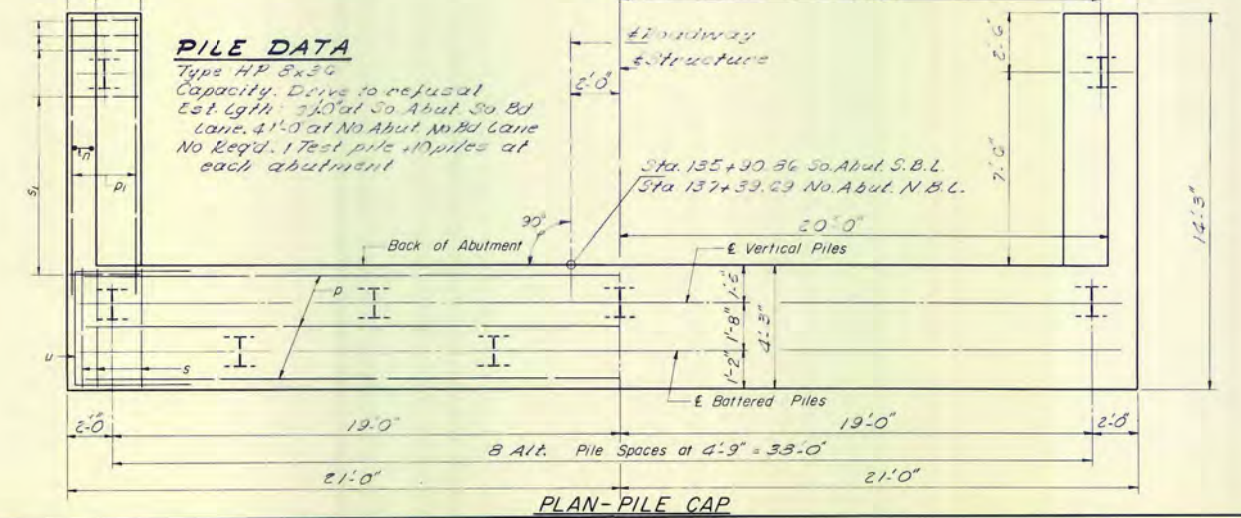 PILE DATA
Type HP 8x36
Capacity: Drive to refusal
Est. Lgth: at So. Abut. So. Bd
Lane. 41'-0 at No Abut. No Bd Lane
No Req'd. 1 Test pile +10 piles at
each abutment
℄ Roadway
℄ Structure
2'-0"
2'-6"
7'-6"
14'-3"
n
p1
s1
90°
Sta. 135+90.86 So. Abut. S.B.L.
Sta 137+39.69 No. Abut. N.B.L.
20'-0"
Back of Abutment
℄ Vertical Piles
p
1'-5"
1'-8"
1'-2"
4'-3"
u
s
℄ Battered Piles
2'-0"
19'-0"
19'-0"
2'-0"
8 Alt. Pile Spaces at 4'-9" = 38'-0"
21'-0"
21'-0"
PLAN-PILE CAP